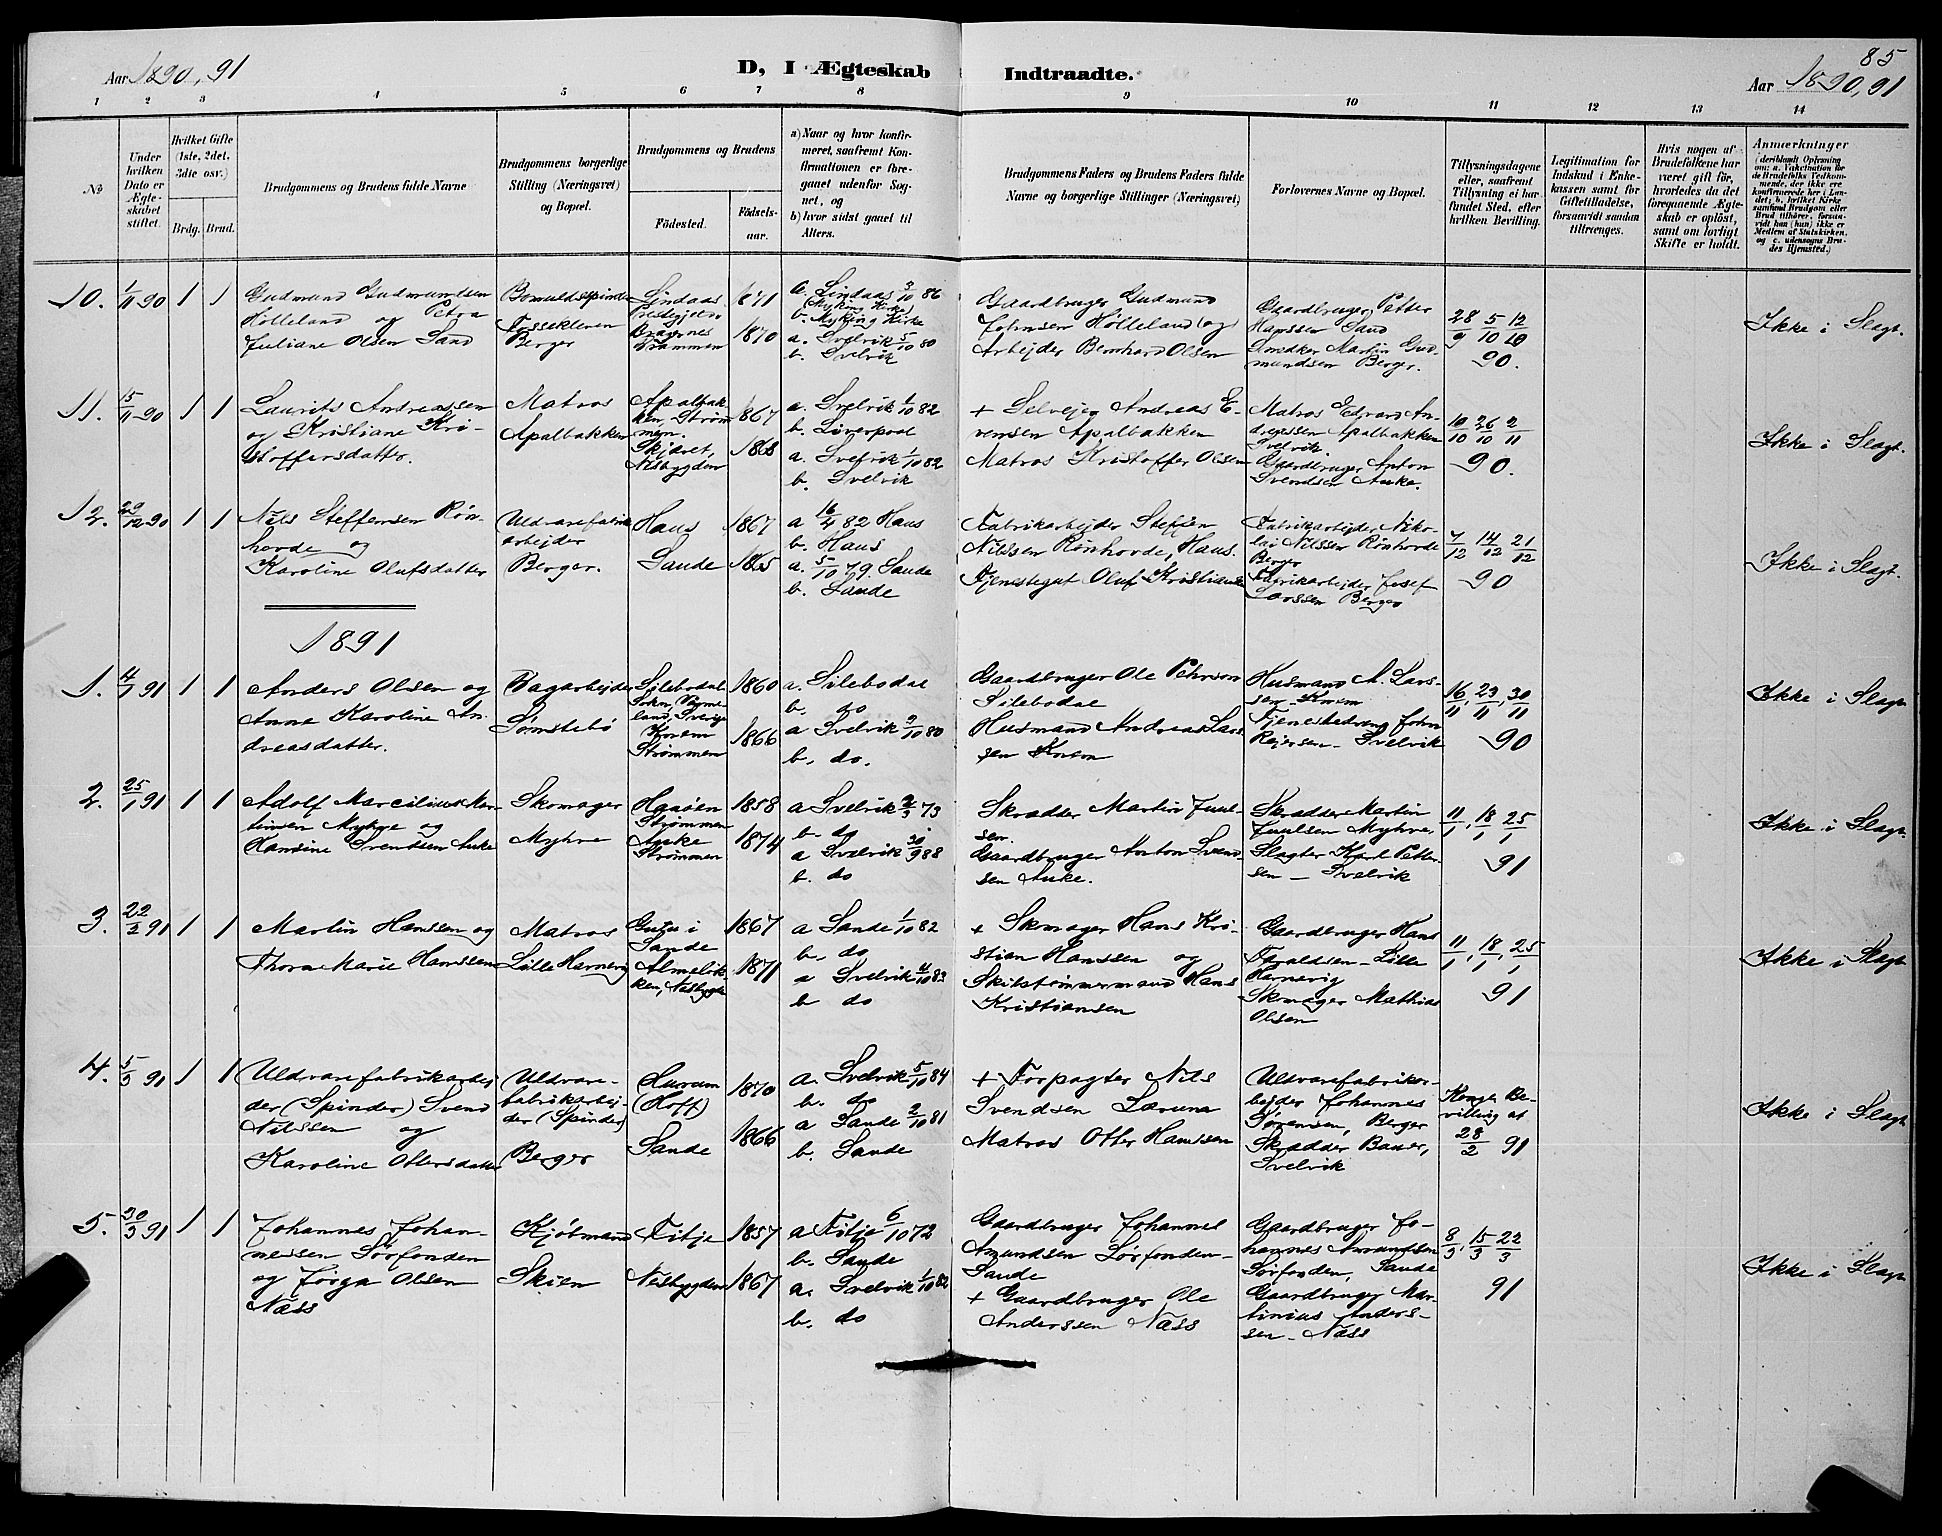 85
Aar 1890, 91
D, I Ægteskab Indtraadte.
Aar 1890, 91
1 2 3 4 5 6 7 8 9 10 11 12 13 14
No
Under hvilken Dato er Ægteskabet stiftet.
Hvilket Gifte (1ste, 2det, 3die osv.)
Brdg. Brud.
Brudgommens og Brudens fulde Navne
Brudgommens borgerlige Stilling (Næringsvei) og Bopæl.
Brudgommens og Brudens
Fødested. Fødselsaar.
a) Naar og hvor konfirmeret, saafremt Konfirmationen er foregaaet udenfor Sognet, og
b) hvor sidst gaaet til Alters.
Brudgommens Faders og Brudens Faders fulde Navne og borgerlige Stillinger (Næringsvei)
Forlovernes Navne og Bopæl.
Tillysningsdagene eller, saafremt Tillysning ei har fundet Sted, efter hvilken Bevilling.
Legitimation for Indskud i Enkekassen samt for Giftetilladelse, forsaavidt saadan tiltrænges.
Hvis nogen af Brudefolkene har været gift før, hvorledes da det foregaaende Ægteskab er opløst, samt om lovligt Skifte er holdt.
Anmærkninger
(deriblandt Oplysning om: a. Vakcination for de Brudefolks Vedkommende, der ikke ere konfirmerede her i Landet; b. hvilket Kirkesamfund Brudgom eller Brud tilhører, forsaavidt han (hun) ikke er Medlem af Statskirken, og c. udensogns Brudes Hjemsted.)
10. 1/11 90 1 1
Gudmund Gudmundsen
Hölleland og Petra
Juliane Olsen Sand
Bomuldsspinder
Fossekleven
Berger
Lindaas
Præstegjeld
Bragernes
Drammen
1871
1870
a. Lindaas 3/10 86
(Myking Kirke)
b. Myking Kirke
a. Svelvik 5/10 80
b. Svelvik
Gaardbruger Gudmund
Johnsen Hölleland og
Arbejder Bernhard Olsen
Gaardbruger Petter
Hanssen Sand
Snedker Martin Gudmundsen Berger.
28/9 5/10 12/10
90.
Ikke i Slagt.
11. 15/11 90 1 1
Laurits Andreassen
og Kristiane Kristoffersdatter.
Matros
Apalbakken
Apalbakken, Strömmen.
Skjæret,
Nesbygden
1867
1868
a. Svelvik 1/10 82
b. Liverpool
a. Svelvik 1/10 82
b. Svelvik
+ Selvejer Andreas Evensen Apalbakken
Matros Kristoffer Olsen
Matros Edvard Andreassen Apalbakken
Svelvik.
Gaardbruger Anton
Svendsen Auke.
19/10 26/10 2/11
90.
Ikke i Slagt.
12. 29/12 90 1 1
Nils Steffensen Rönhovde og
Karoline Olufsdatter
Uldvarefabrikarbejder
Berger.
Haus
Sande
1867
1865
a 16/4 82 Haus
b. Haus
a. 5/10 79 Sande
b. Sande
Fabrikarbejder Steffen
Nilssen Rönhovde, Haus.
Tjenestegut Oluf Kristiansen
Fabrikarbejder Nikolai Nilssen Rönhovde
Berger
Fabrikarbejder Josef
Larssen Berger
7/12 14/12 21/12
90
Ikke i Slagt.
1891
1. 4/1 91 1 1
Anders Olsen og
Anne Karoline Andreasdatter.
Dagarbejder
Tømstebø
Silebodal
Sokn, Værmeland, Sverige
Knem
Strømmen
1860
1866
a. Silebodal
b. do
a Svelvik 9/10 80
b. do.
Gaardbruger Ole Pehrson
Silebodal
Husmand Andreas Larssen Knem
Husmand A. Larssen Knem
Tjenestedreng John
Reiersen - Svelvik
16/11, 23/11, 30/11
90
Ikke i Slagt
2. 25/1 91 1 1
Adolf Marcilius Martinsen Myhre og
Hansine Svendsen Auke
Skomager
Myhre
Haaöen
Strømmen
Auke
Strømmen
1858
1874
a Svelvik 2/3 73
b. do
a Svelvik 30/9 88
b. do
Skrædder Martin Juulsen.
Gaardbruger Anton Svendsen Auke.
Skrædder Martin
Juulsen Myhre,
Slagter Karl Pettersen — Svelvik
11/1, 18/1, 25/1
91
Ikke i Slagt
3. 22/2 91 1 1
Martin Hanssen og
Thora Marie Hanssen
Matros
Lille Havnevig
i
Sande
Nesbygden
1867
1871
a Sande 1/10 82
b. do
a Svelvik 4/10 83
b do
+ Skomager Hans Kristian Hanssen og
Skibstømmermand Hans
Kristiansen
Gaardbruger Hans
Taraldsen - Lille
Havnevig
Skomager Mathias
Olsen
11/1, 18/1, 25/1
91
Ikke i Slagt
4. 5/3 91 1 1
Uldvarefabrikarbejder (Spinder) Svend
Nilssen og
Karoline Ottersdatter
Uldvarefabrikarbejder (Spinder)
Berger
Hurum
(Hoff)
Sande
1870
1866
a. Svelvik 5/10 84
b. do
a Sande 2/10 81
b. Sande
+ Forpagter Nils
Svendsen
Matros Otter Hanssen
Uldvarefabrikarbejder Johannes
Sørensen, Berger
Skrædder Bauer,
Svelvik
Kongl. Bevilling af
28/2 91
Ikke i Slagt
5. 30/3 91 1 1
Johannes Johannessen Sørfonden
og Jørga Olsen
Næss
Kjøbmand
Skien
Fitje
Nesbygden
1857
1867
a Fitje 6/10 72
b. Sande
a. Svelvik 1/10 82
b. do
Gaardbruger Johannes
Amundsen Sørfonden -
Sande
+ Gaardbruger Ole
Anderssen Næss
Gaardbruger Johannes Amundsen
Sørfonden, Sande
Gaardbruger Martinius Anderssen - Næss
8/3, 15/3 22/3
91
Ikke i Slagt